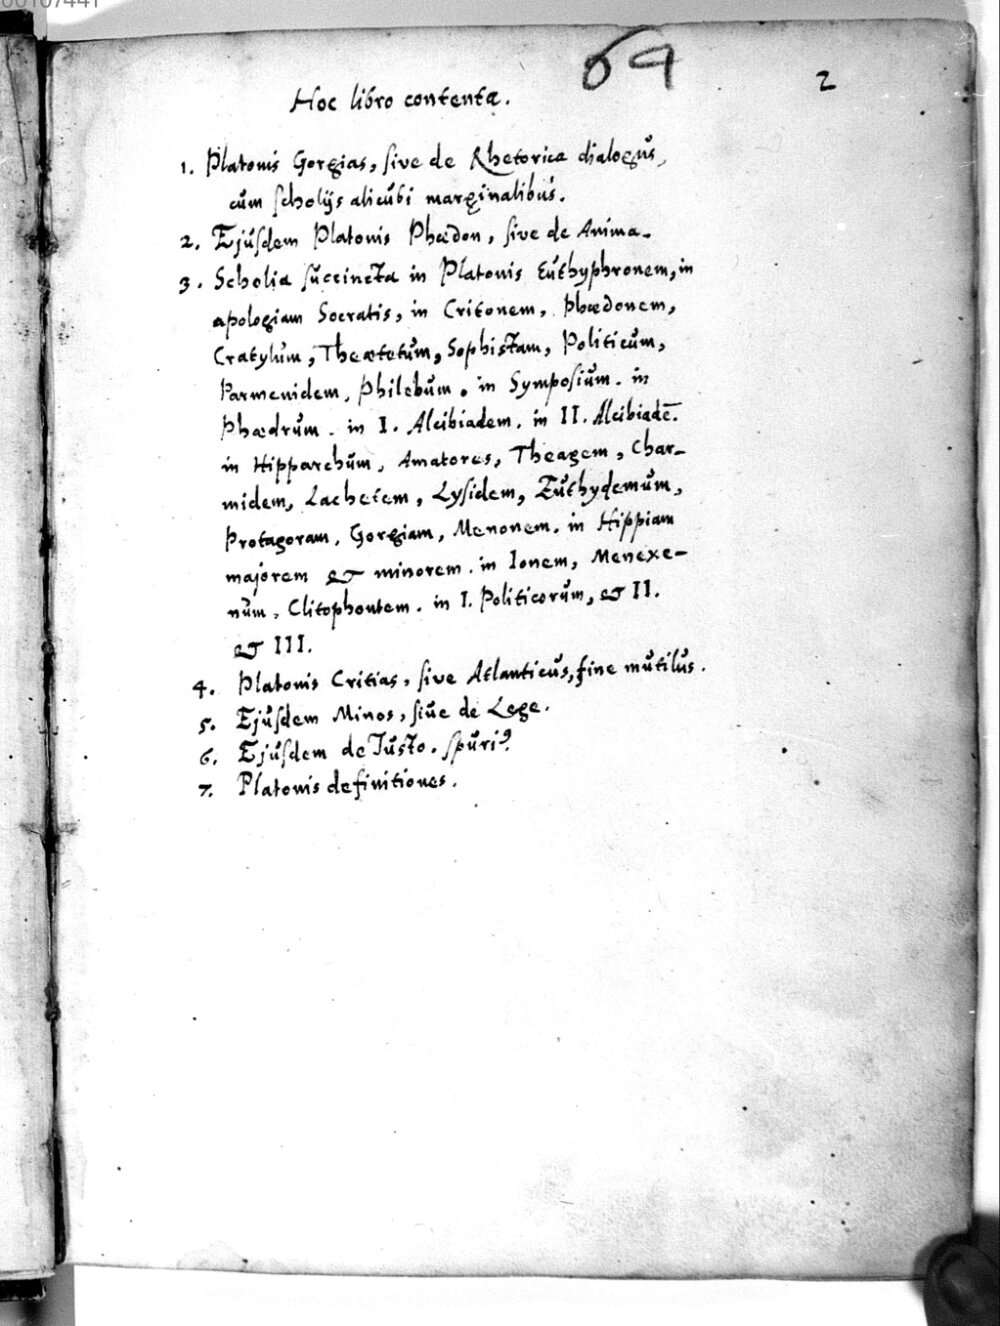 00107441
69
2
Hoc libro contenta.
1. Platonis Gorgias, sive de Rhetorica dialogus,
cum scholijs alicubi marginalibus.
2. Ejusdem Platonis Phædon, sive de Anima.
3. Scholia succincta in Platonis Euthyphronem, in
apologiam Socratis, in Critonem, Phædonem,
Cratylum, Theætetum, Sophistam, Politicum,
Parmenidem, Philebum. in Symposium. in
Phædrum. in I. Alcibiadem. in II. Alcibiadē.
in Hipparchum, Amatores, Theagem, Char-
midem, Lachetem, Lysidem, Euthydemum,
Protagoram, Gorgiam, Menonem. in Hippiam
majorem & minorem. in Ionem, Menexe-
num, Clitophontem. in I. Politicorum, & II.
& III.
4. Platonis Critias, sive Atlanticus, fine mutilus.
5. Ejusdem Minos, siue de Lege.
6. Ejusdem de Justo. spuriꝰ.
7. Platonis definitiones.